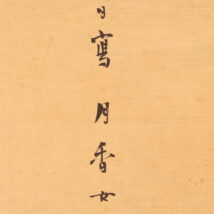 日寫月香女